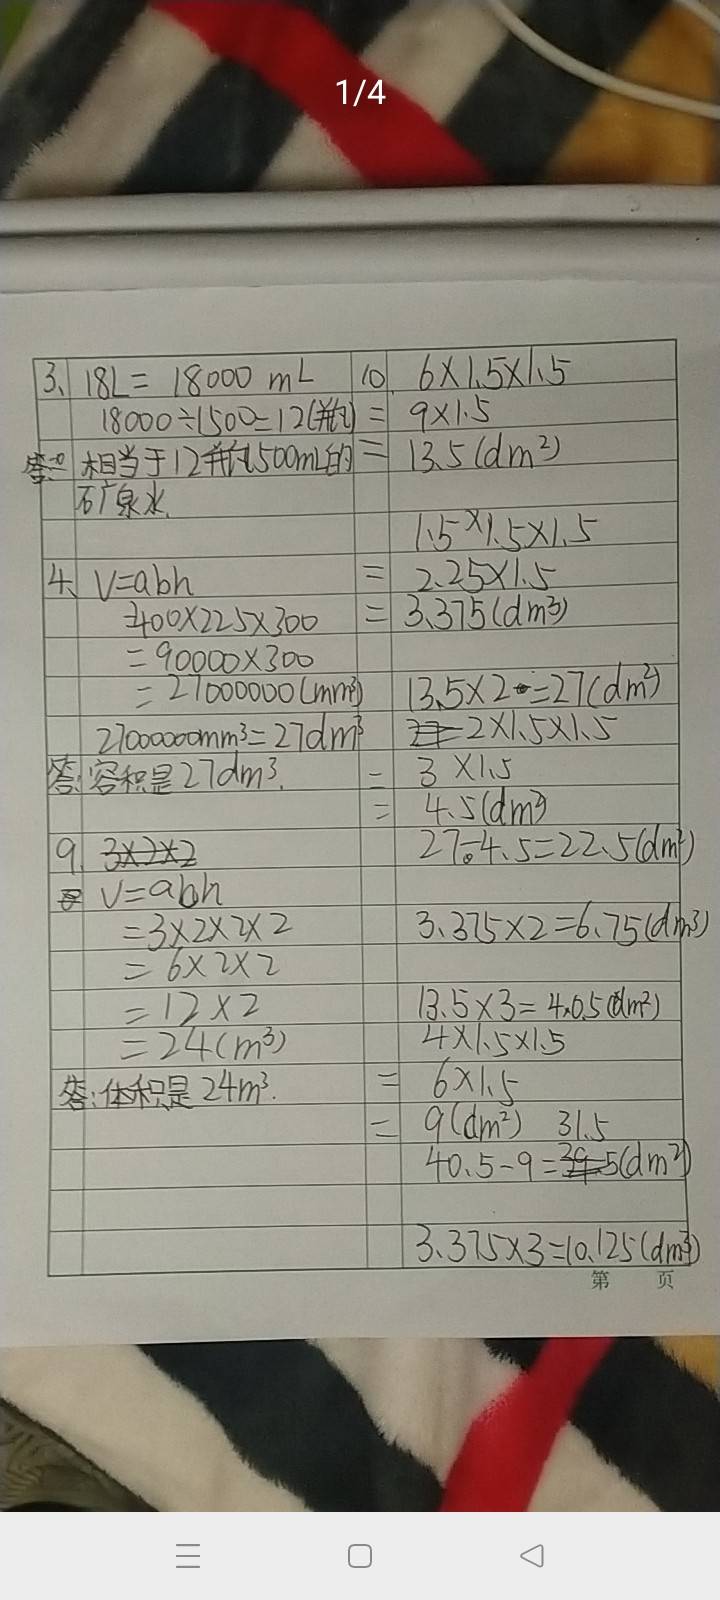 1/4
3、 18L = 18000 mL
18000÷1500=12(瓶)
答: 相当于12瓶1500mL的
矿泉水.
4、 V=abh
=400×225×300
=90000×300
=27000000(mm³)
27000000mm³=27dm³
答:容积是27dm³.
9. 3×2×2
V=abh
=3×2×2×2
=6×2×2
=12×2
=24(m³)
答:体积是24m³.
10. 6×1.5×1.5
= 9×1.5
= 13.5(dm²)
1.5×1.5×1.5
= 2.25×1.5
= 3.375(dm³)
13.5×2=27(dm²)
2×1.5×1.5
= 3×1.5
= 4.5(dm²)
27-4.5=22.5(dm²)
3.375×2=6.75(dm³)
13.5×3=40.5(dm²)
4×1.5×1.5
= 6×1.5
= 9(dm²) 31.5
40.5-9=39.5(dm²)
3.375×3=10.125(dm³)
第 页